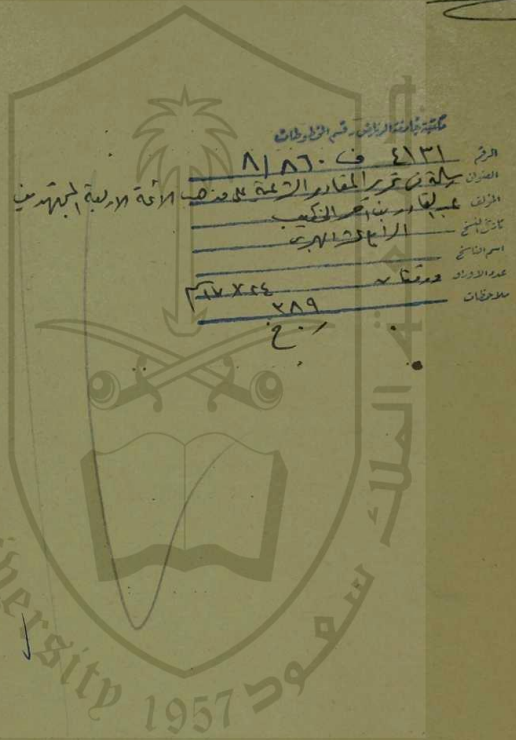 مكتبة جامعة الرياض - قسم المخطوطات
الرقم ٤١٣١ ف ٨/٨٦٠
العنوان رسالة في تحرير المقادير الشرعية على مذهب الأئمة الأربعة المجتهدين
المؤلف عبد القادر بن أحمد الخطيب
تاريخ النسخ الرابع عشر الهجري
اسم الناسخ
عدد الأوراق ورقتان ٢٤ × ١٧ سم
ملاحظات ٣٨٩
ر. خ
جامعة الملك سعود
University 1957